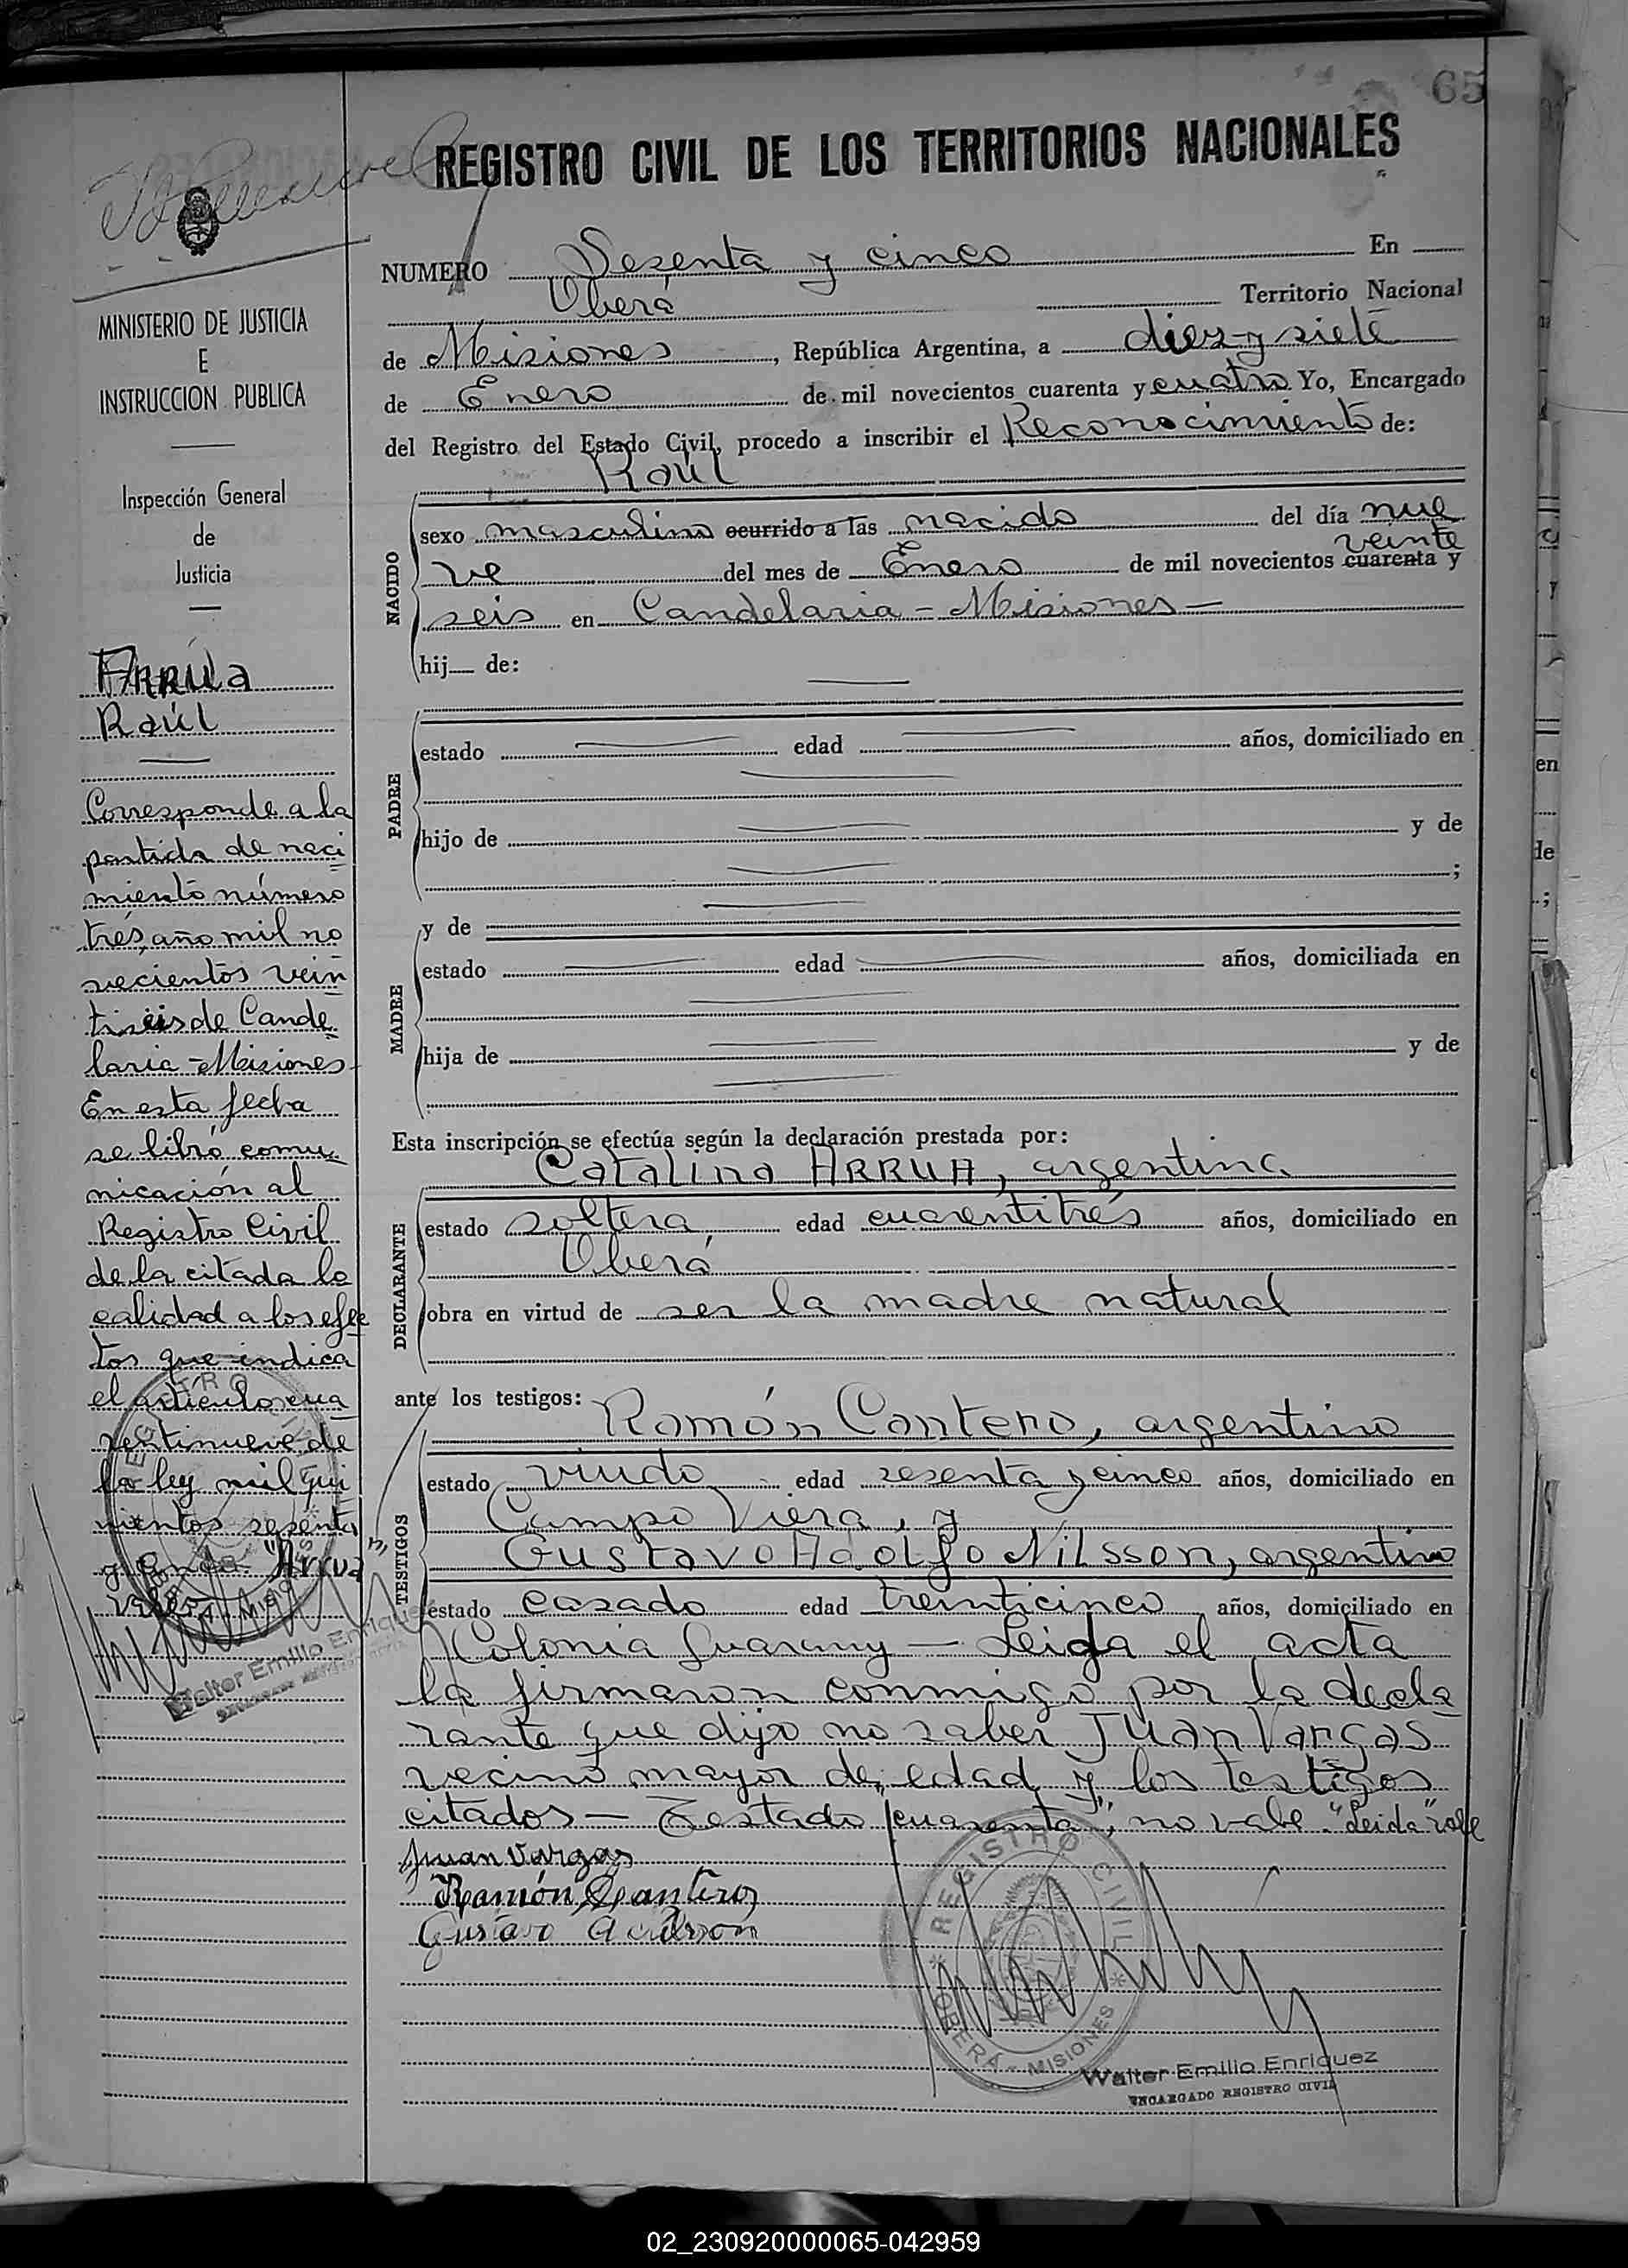 65
REGISTRO CIVIL DE LOS TERRITORIOS NACIONALES
NUMERO Sesenta y cinco En
Oberá Territorio Nacional
de Misiones, República Argentina, a diez y siete
de Enero de mil novecientos cuarenta y cuatro Yo, Encargado
del Registro del Estado Civil, procedo a inscribir el Reconocimiento de:
Raúl
NACIDO
sexo masculino ocurrido a las nacido del día nue
veinte
ve del mes de Enero de mil novecientos cuarenta y
seis en Candelaria - Misiones -
hij de:
PADRE
estado edad años, domiciliado en
hijo de y de
;
y de
MADRE
estado edad años, domiciliada en
hija de y de
Esta inscripción se efectúa según la declaración prestada por:
Catalina ARRUA, argentina
DECLARANTE
estado soltera edad cuarentitrés años, domiciliado en
Oberá
obra en virtud de ser la madre natural
ante los testigos:
Ramón Cantero, argentino
TESTIGOS
estado viudo edad sesenta y cinco años, domiciliado en
Campo Viera, y
Gustavo Adolfo Nilsson, argentino
estado casado edad treinticinco años, domiciliado en
Colonia Guarany - Leida el acta
la firmaron conmigo por la decla
rante que dijo no saber Juan Vargas
vecino mayor de edad y los testigos
citados - Testado "cuarenta", no vale. "Leida" vale
Juan Vargas
Ramón Cantero
REGISTRO CIVIL
OBERÁ - MISIONES
Walter Emilio Enriquez
ENCARGADO REGISTRO CIVIL
MINISTERIO DE JUSTICIA
E
INSTRUCCION PUBLICA
Inspección General
de
Justicia
ARRÚa
Raúl
Corresponde a la
partida de naci
miento número
tres, año mil no
vecientos vein
tiseis de Cande
laria - Misiones
En esta fecha
se libró comu
nicación al
Registro Civil
de la citada lo
calidad a los efec
tos que indica
el artículo cua
rentinueve de
la ley mil qui
nientos sesenta
"Arrua"
Walter Emilio Enriquez
02_230920000065-042959